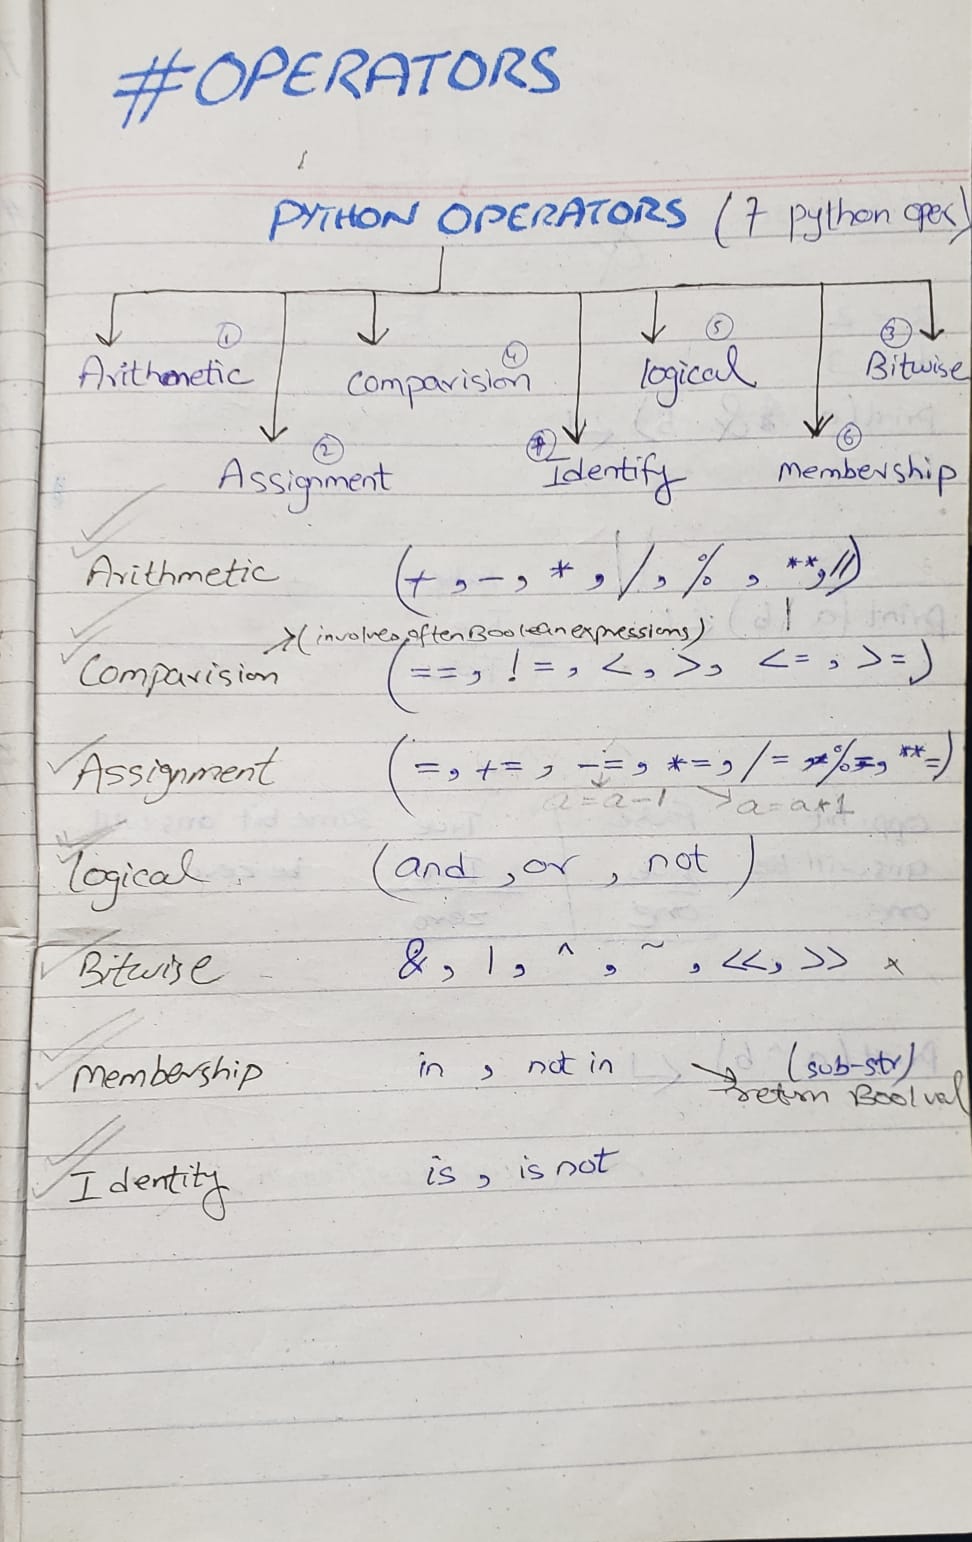 #OPERATORS
PYTHON OPERATORS (7 python oper)
① ⑤ ③
Arithmetic ④ logical Bitwise
Comparision
② ⑦ ⑥
Assignment Identify Membership
Arithmetic (+, -, *, /, %, **, //)
(involves often Boolean expressions)
Comparision (==, !=, <, >, <=, >=)
Assignment (=, +=, -=, *=, /=, %=, **=)
a=a-1 a=a*1
logical (and, or, not)
Bitwise &, |, ^, ~, <<, >>
Membership in, not in → (sub-str)
return Bool val
Identity is, is not